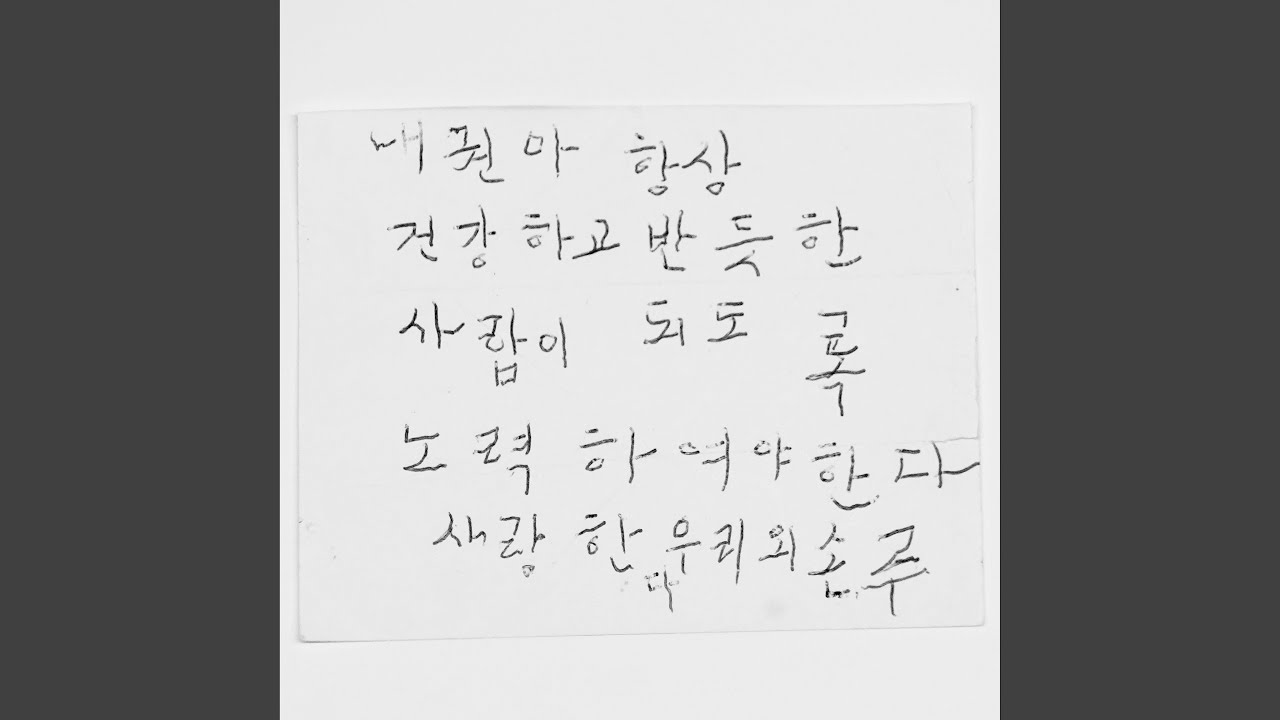 항상
건강하고 반듯한
사람이 되도록
노력하여야한다
사랑한다 우리외손주